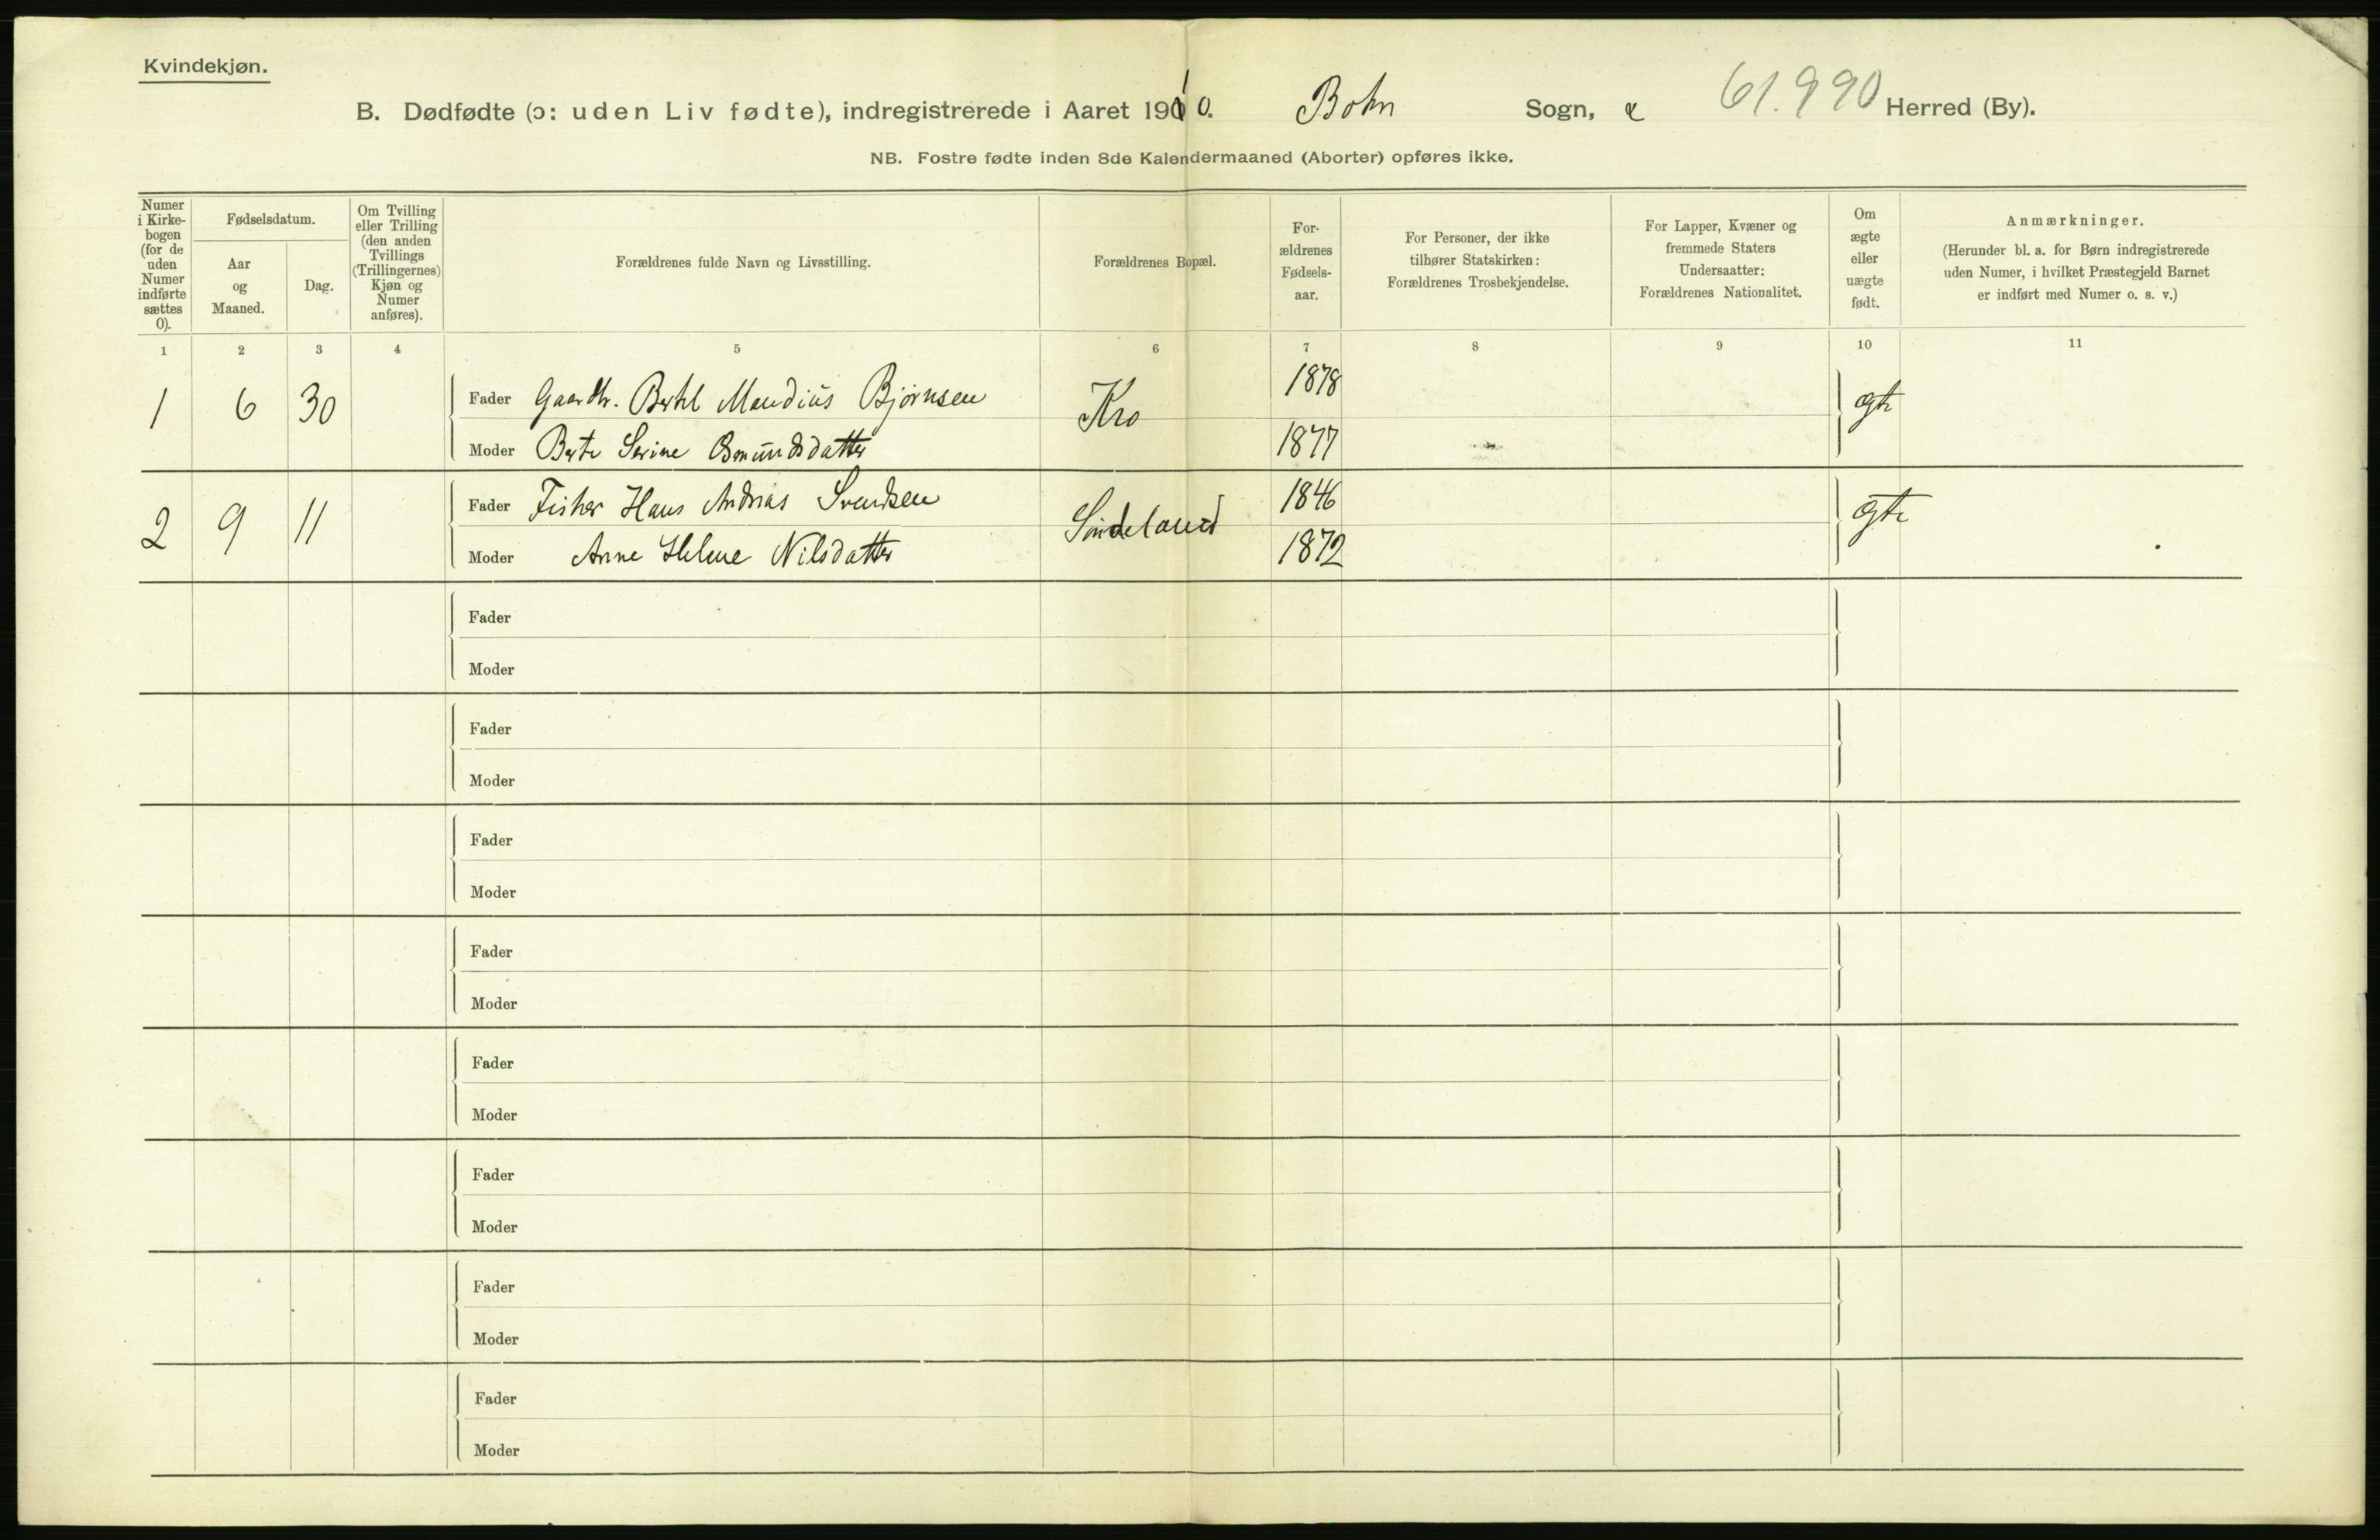 Kvindekjøn.
B. Dødfødte (ɔ: uden Liv fødte), indregistrerede i Aaret 1910. Bokn Sogn, & 61.990 Herred (By).
NB. Fostre fødte inden 8de Kalendermaaned (Aborter) opføres ikke.
Numer i Kirkebogen (for de uden Numer indførte sættes 0).
Fødselsdatum.
Aar og Maaned.
Dag.
Om Tvilling eller Trilling (den anden Tvillings (Trillingernes) Kjøn og Numer anføres).
Forældrenes fulde Navn og Livsstilling.
Forældrenes Bopæl.
For-ældrenes Fødsels-aar.
For Personer, der ikke tilhører Statskirken: Forældrenes Trosbekjendelse.
For Lapper, Kvæner og fremmede Staters Undersaatter: Forældrenes Nationalitet.
Om ægte eller uægte født.
Anmærkninger.
(Herunder bl. a. for Børn indregistrerede uden Numer, i hvilket Præstegjeld Barnet er indført med Numer o. s. v.)
1 2 3 4 5 6 7 8 9 10 11
1 6 30 Fader Gaardbr. Bertel Maudius Bjørnsen Kro 1878 ægte
Moder Berte Serine Osmundsdatter 1877
2 9 11 Fader Fisker Hans Andreas Svendsen Sindeland 1846 ægte
Moder Anne Helene Nilsdatter 1872
Fader
Moder
Fader
Moder
Fader
Moder
Fader
Moder
Fader
Moder
Fader
Moder
Fader
Moder
Fader
Moder